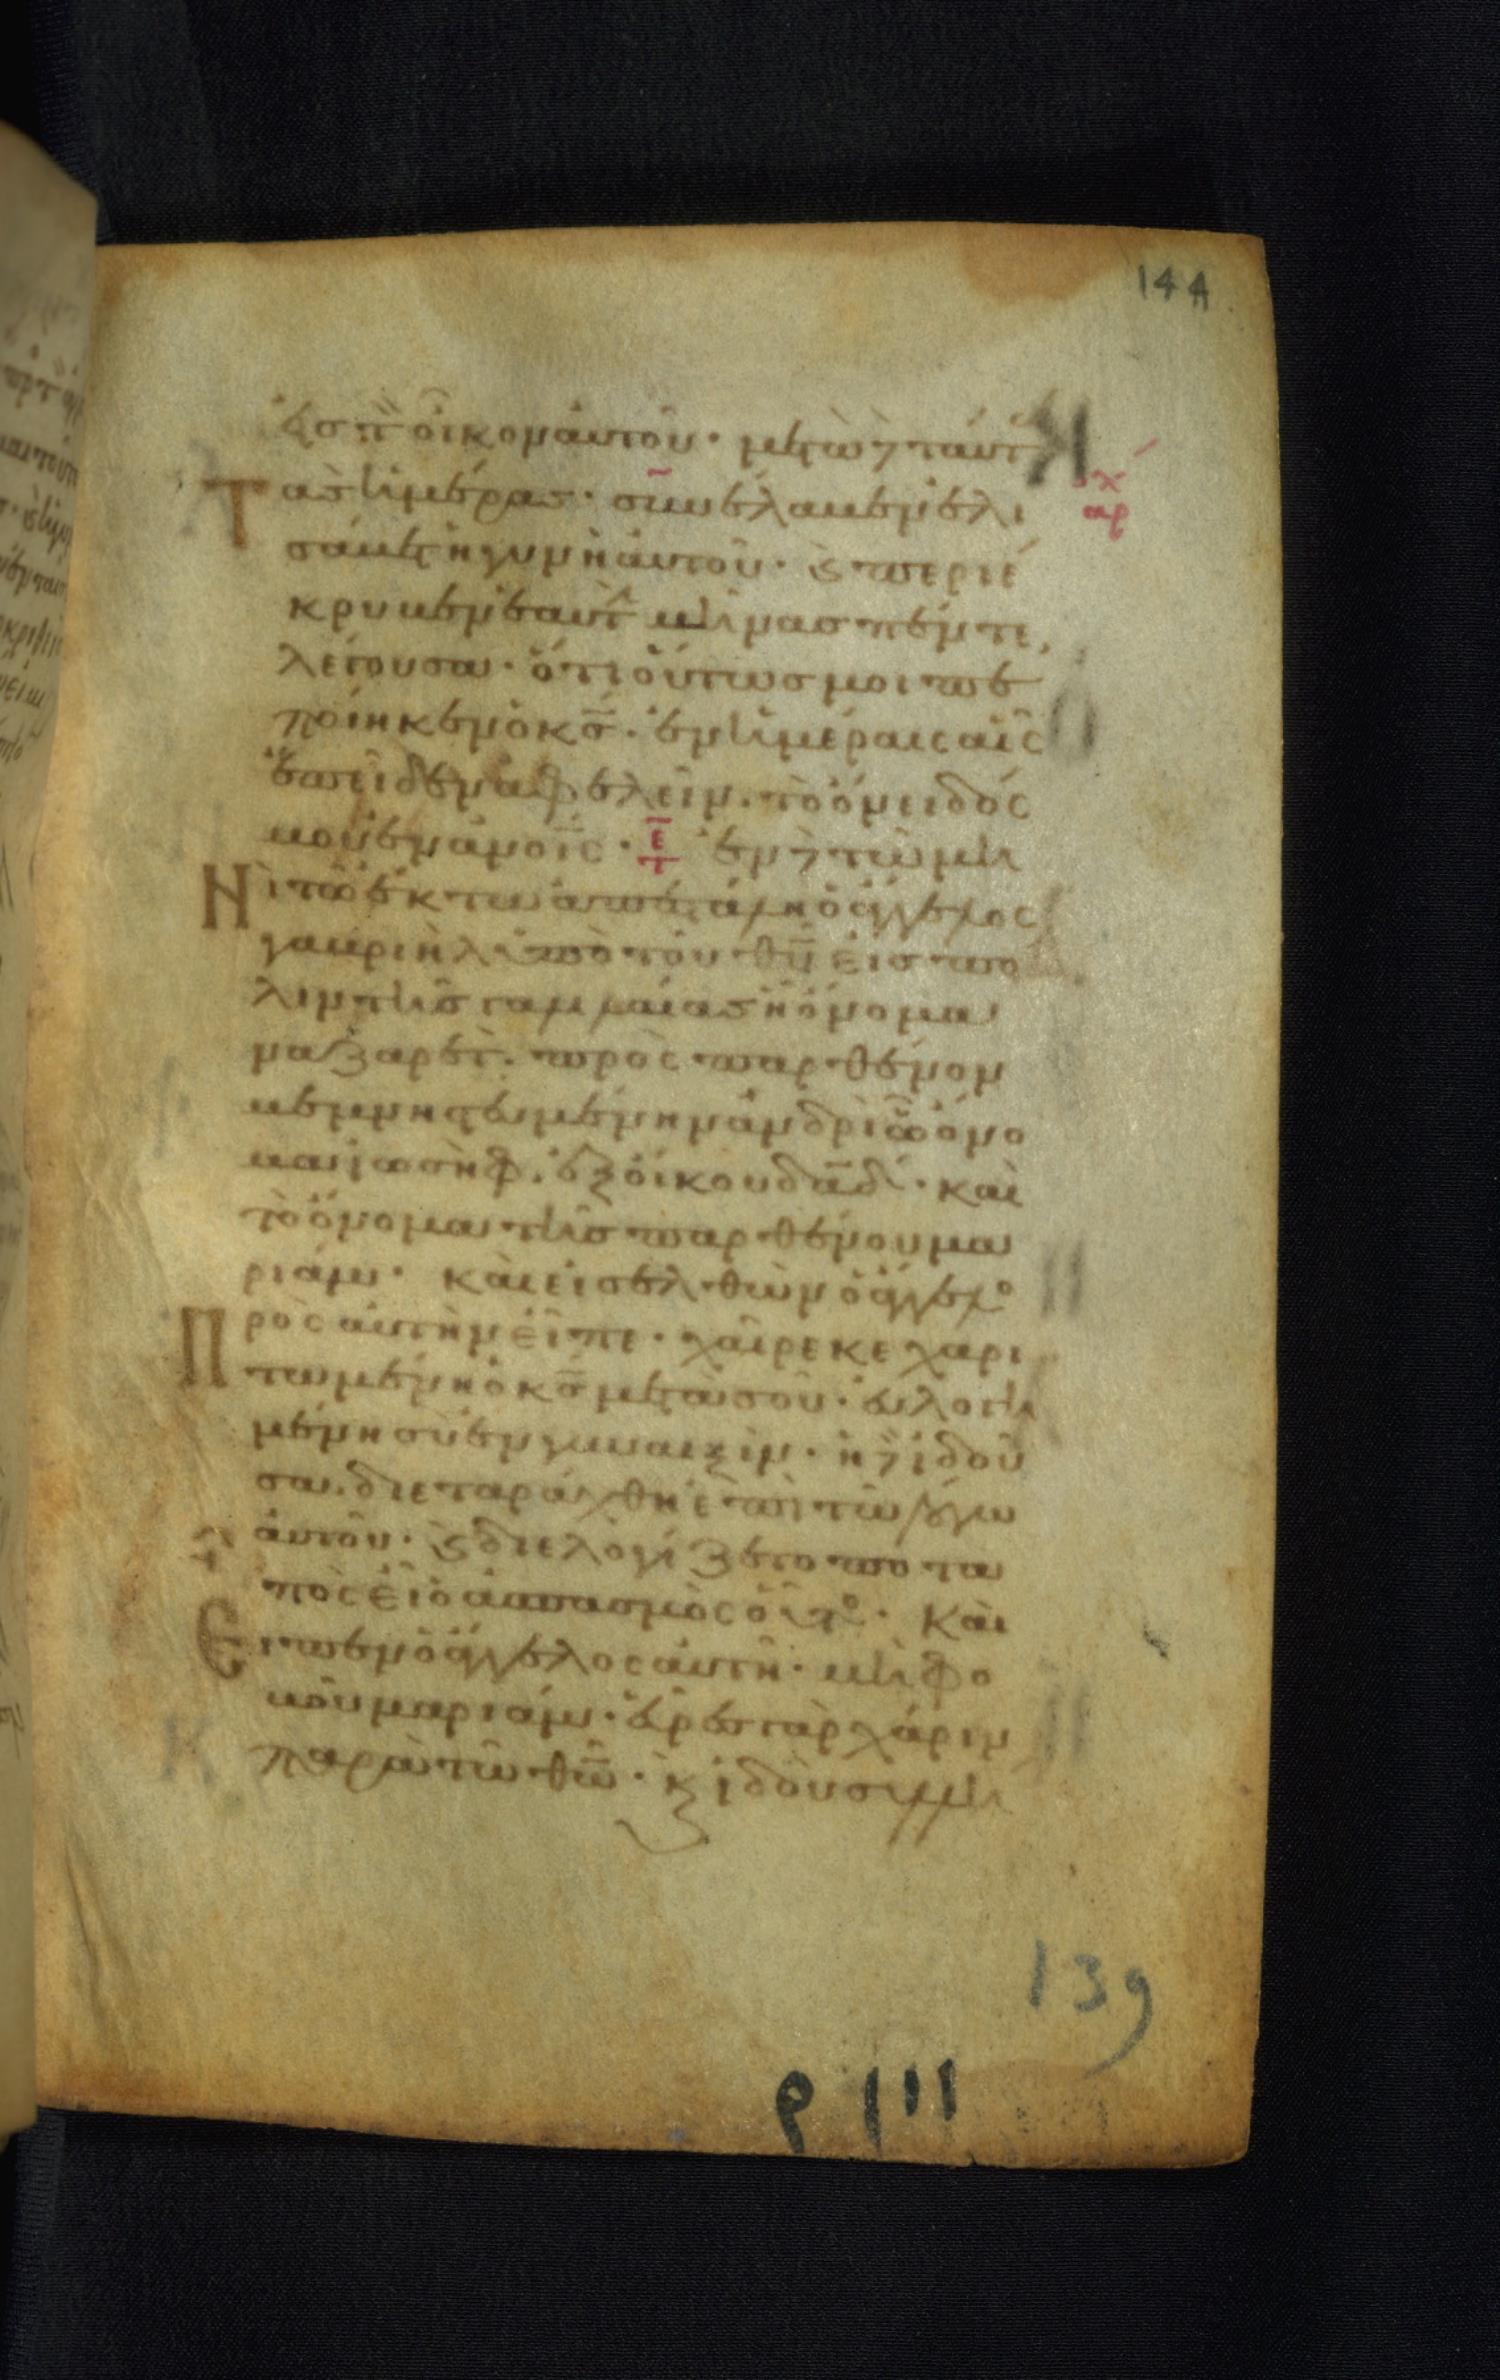 144
εἰς τ̀ οἶκον αὐτοῦ · μετὰ δὲ ταύτ
Τὰς ἡμέρας · συνέλαβεν ἐλι
σάβετ ἡ γυνὴ αὐτοῦ · ϗ περιέ
κρυβεν ἑαυτ̀ μῆνας πέντε
λέγουσα · ὅτι οὕτως μοι πε
ποίηκεν ὁ κς̄ · ἐν ἡμέραις αἷς
ἐπεῖδεν ἀφελεῖν · τὸ ὄνειδός
μου ἐν ἀνοις · ἐν δὲ τῶ μη
Νὶ τῶ ἕκτω ἀπεστάλη ὁ ἄγγελος
γαβριὴλ ὑπὸ τοῦ θῡ εἰς πό
λιν τῆς γαλιλαίας ἧ ὄνομα
ναζαρέτ · πρὸς παρθένον
μεμνηστευμένην ἀνδρὶ ὧ ὄνο
μα ἰωσὴφ · ἐξ οἴκου δᾱδ · καὶ
τὸ ὄνομα τῆς παρθένου μα
ριάμ · καὶ εἰσελθὼν ὁ ἄγγελο
Πρὸς αὐτὴν εἶπε · χαῖρε κεχαρι
τωμένη ὁ κς̄ μετὰ σοῦ · εὐλογη
μένη σὺ ἐν γυναιξίν · ἡ δὲ ἰδοῦ
σα διεταράχθη ἐπὶ τῶ λόγω
αὐτοῦ · ϗ διελογίζετο ποτα
πὸς εἴη ὁ ἀσπασμὸς οὗτο · καὶ
Εἶπεν ὁ ἄγγελος αὐτῆ · μὴ φο
βοῦ μαριάμ · εὗρες γὰρ χάριν
παρὰ τῶ θῶ̄ · ϗ ἰδοὺ συλλη
139